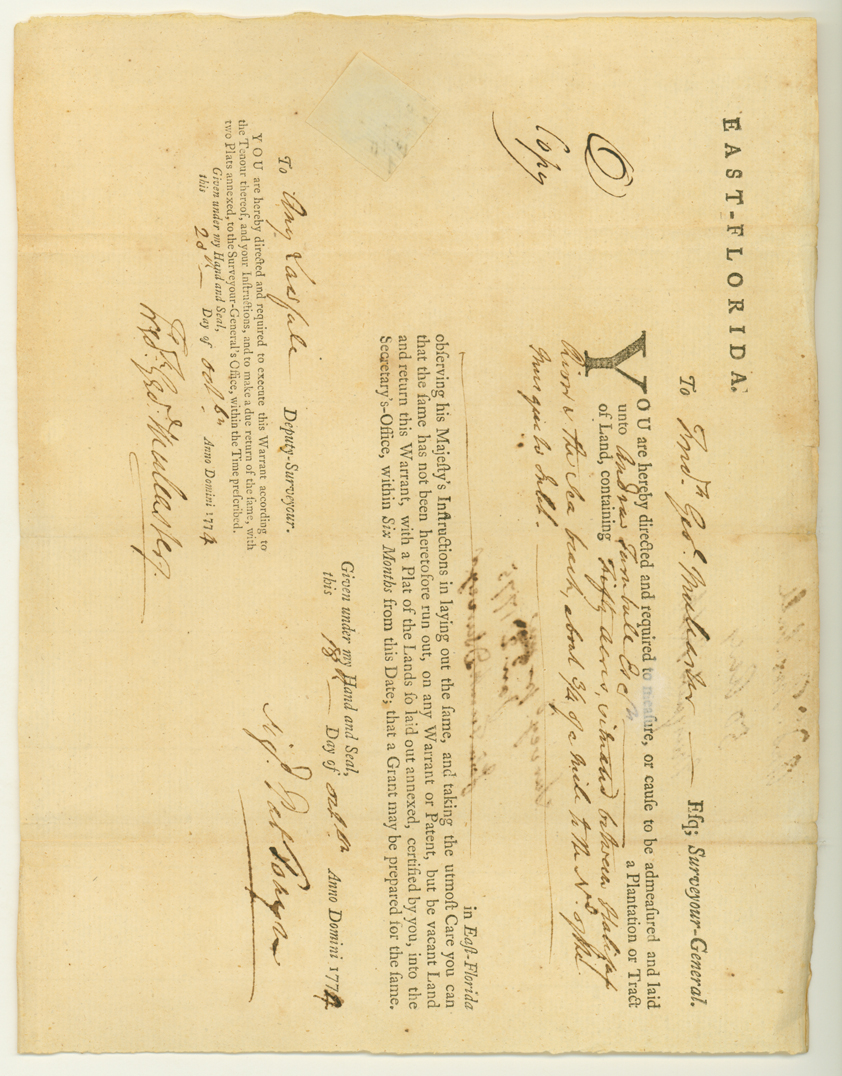 EAST-FLORIDA.
To Fred.k Geo. Mulcaster Eſq; Surveyour-General.
Copy
YOU are hereby directed and required to meaſure, or cauſe to be admeaſured and laid
unto Andrew Turnbull Esqr. a Plantation or Tract
of Land, containing fifty Acres, situated between Halifax
River & the Sea beach, about 3/4 of a Mile to the N.d of the
Musquito Inlet.
in Eaſt-Florida
obſerving his Majeſty's Inſtructions in laying out the ſame, and taking the utmoſt Care you can
that the ſame has not been heretofore run out, on any Warrant or Patent, but be vacant Land
and return this Warrant, with a Plat of the Lands ſo laid out annexed, certified by you, into the
Secretary's-Office, within Six Months from this Date; that a Grant may be prepared for the ſame.
Given under my Hand and Seal,
this 18th Day of Anno Domini 1774
Sign'd Pat Tonyn
To Any Lawfule Deputy-Surveyour.
YOU are hereby directed and required to execute this Warrant according to
the Tenour thereof, and your Inſtructions, and to make a due return of the ſame, with
two Plats annexed, to the Surveyour-General's Office, within the Time preſcribed.
Given under my Hand and Seal,
this Day of Anno Domini 1774
Fred. Geo. Mulcaster.